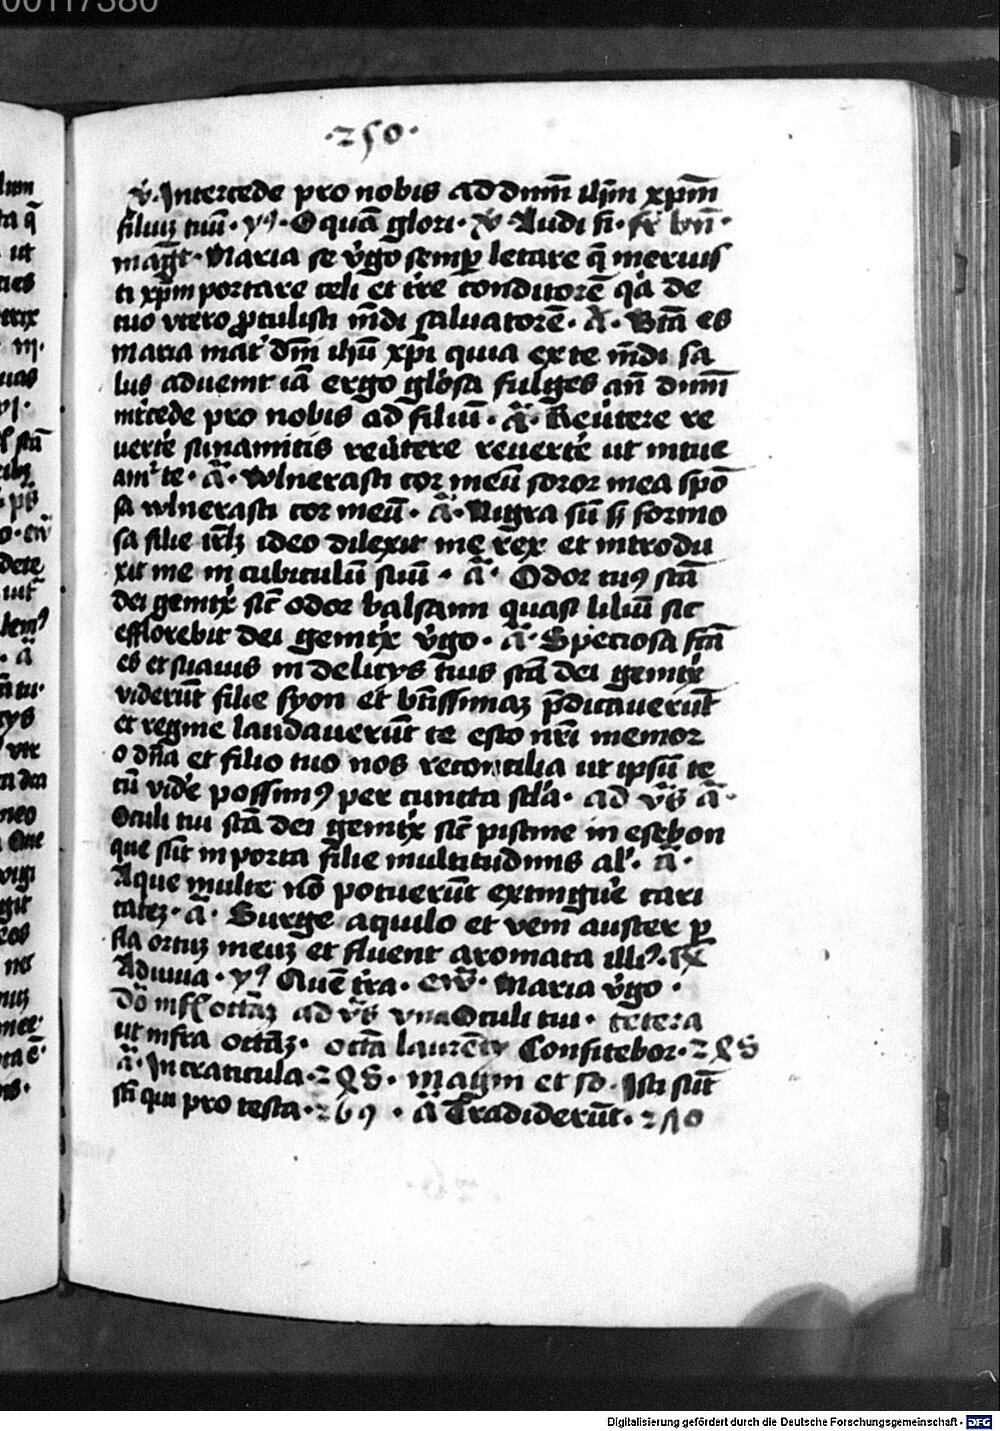 00117380
·250·
v̄. Intercede pro nobis ad dnm̄ ih̄m xp̄m
filiuʒ tuū · yꝰ · O quā glori · v̄ · Audi fi · bn̄ ·
mag̅t · Maria se v̓go semp̲ letare q̄ meruis
ti xp̄m portare celi et tr̄e conditorē q̓a de
tuo vtero ꝓtulisti mūdi saluatorē · A̅ · Btā es
maria mat̓ dn̄i ih̄u xp̄i quia ex te mūdi sa
lus aduenit iā ergo glo̓sa fulges an̄ dnm̄
int̓cede pro nobis ad filiū · ā · Reu̓tere re
uert̓e sunamitis reu̓tere reuert̓e ut intue
am̓ te · ā · wlnerasti cor meū soror mea spō
sa wlnerasti cor meū · ā · Nigra sū sʒ formo
sa filie ierlʒ ideo dilexit me rex et introdu
xit me in cubiculū suū · ā · Odor tuꝰ stā
dei genitx̓ sic̄ odor balsami quasi liliū sic
efflorebit dei genitx̓ v̓go · ā · Speciosa stā
es et suauis in delicys tuis stā dei genitx̓
viderūt filie syon et bt̄issimaʒ p̄dicauerūt
et regine laudauerūt te esto nr̄i memor
o dn̄a et filio tuo nos reconcilia ut ipsū te
cū vid̓e possimꝰ per cuncta sc̄la · ad v̓s ā ·
Oculi tui stā dei genitx̓ sic̄ piscine in esebon
que sūt in porta filie multitudinis al̓ · ā ·
Aque multe nō potuerūt exting̓ue cari
tateʒ · ā · Surge aquilo et veni auster p̲
fla ortuʒ meuʒ et fluent aromata illiꝰ ·
Adiuua · yꝰ Quē tr̄a · ew̄ · Maria v̓go ·
Dō infr̄ octāʒ ad v̓s vna Oculi tui · cetera
ut infra octāʒ · octā laurēty Confitebor · 298
ā · In craticula · 298 · magn̄i et sō · Isti sūt
sti qui pro testa · 269 · ā Tradiderūt · 250
Digitalisierung gefördert durch die Deutsche Forschungsgemeinschaft · DFG